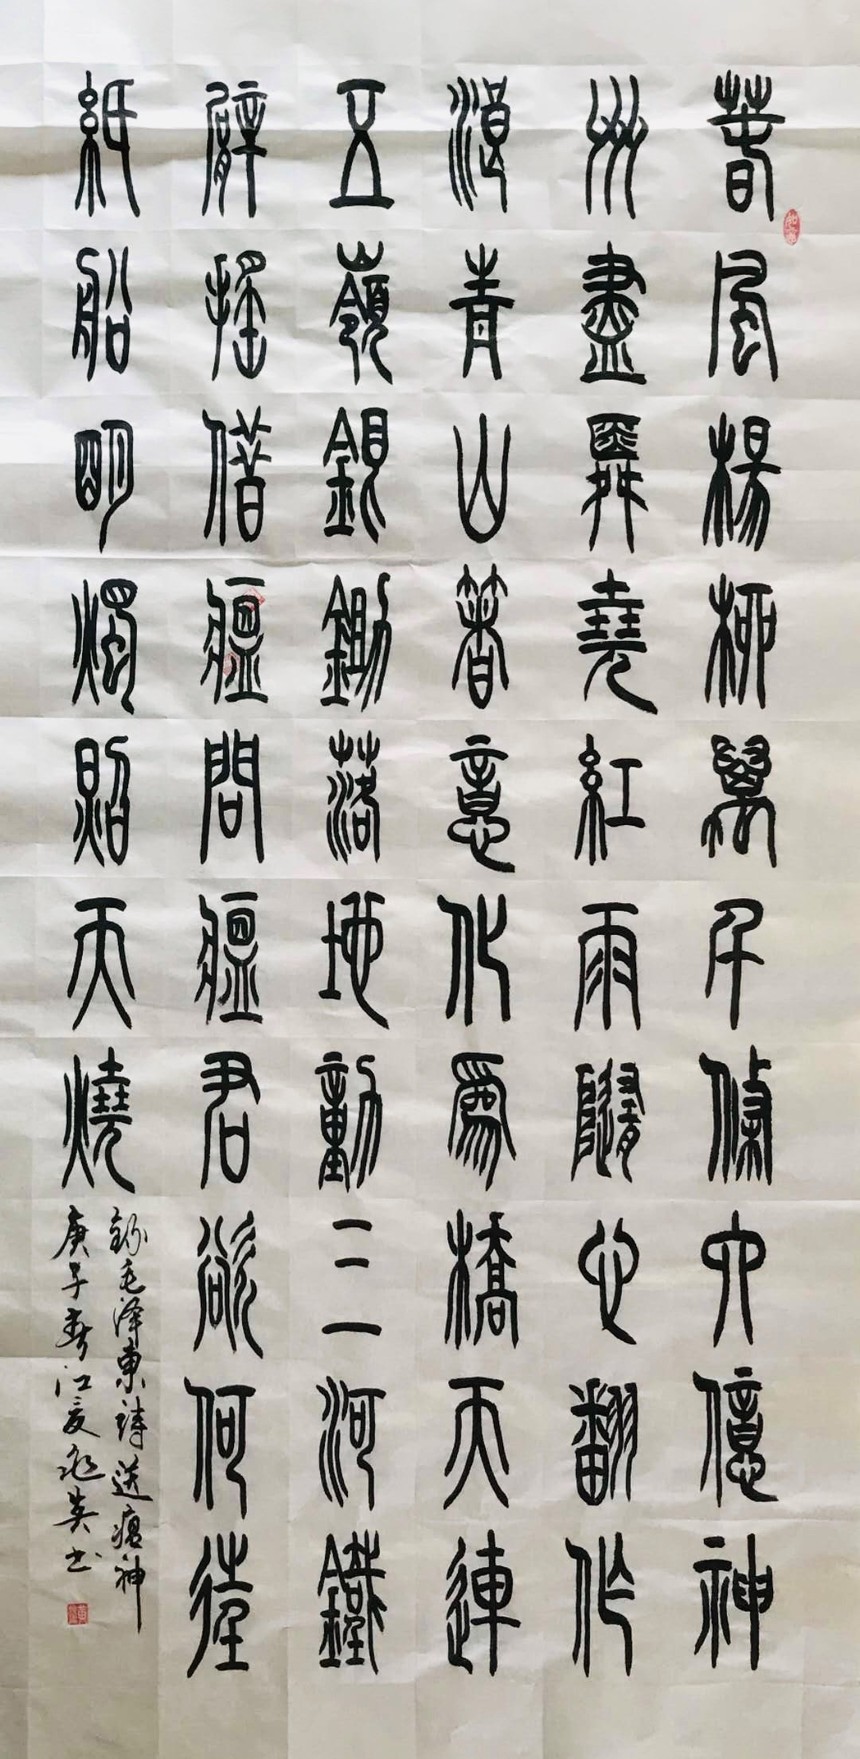 春風楊柳萬千條六億神
州盡舜堯紅雨隨心翻作
浪青山箸意化爲橋天連
五嶺銀鋤落地動三河鐵
臂搖借瘟問瘟君欲何往
紙船明燭照天燒
錄毛泽東詩送瘟神
庚子春江夏英书